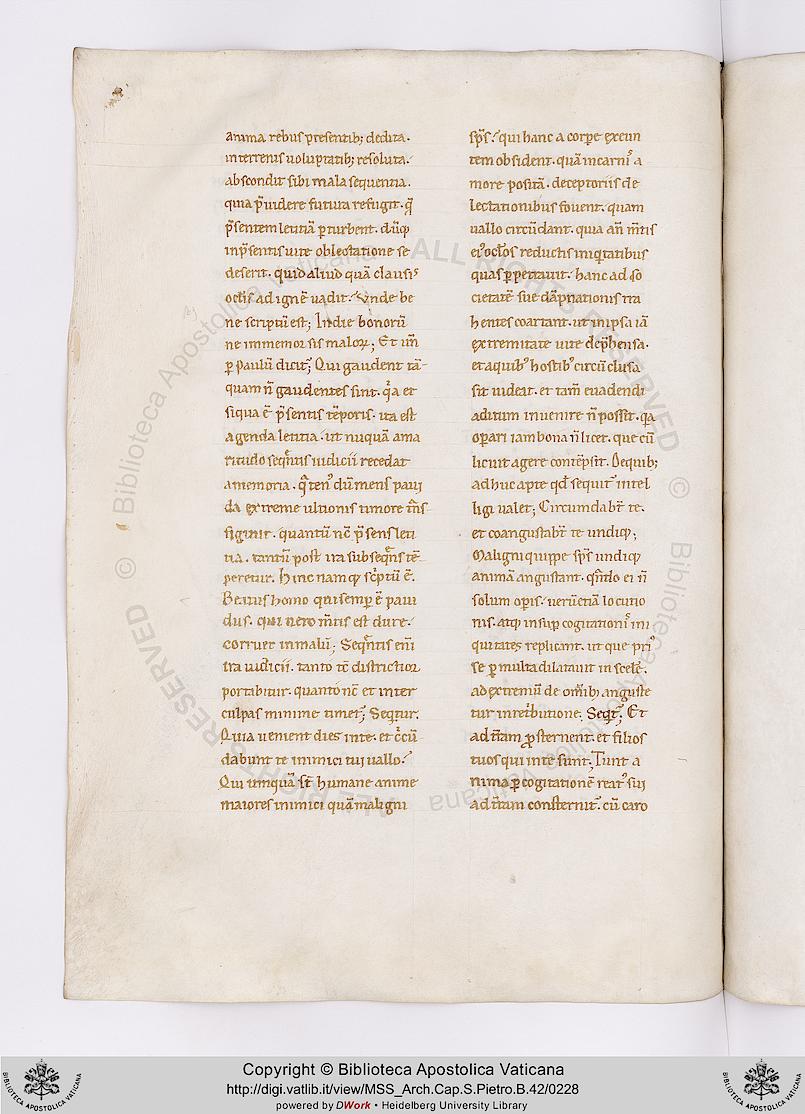 anima rebus presentib; dedita.
in terrenis uoluptatib; resoluta.
abscondit sibi mala sequentia.
quia p̄uidere futura refugit. q̄
p̄sentem letitiā ꝑturbent. dūq;
in p̄sentis uite oblectatione se
deserit. quid aliud quā clausis
oclis ad ignē uadit. Vnde be
ne scriptū est; In die bonorū
ne immemor sis maloꝝ; Et im̄
ꝑ paulū dicit; Qui gaudent tā
quam n̄ gaudentes sint. qa et
siqua ē p̄sentis tēporis. ita est
agenda letitia. ut nūquā ama
ritudo seqn̄tis iudicii recedat
a memoria. q̄ten' dū mens paui
da extreme ultionis timore
figitur. quantū nc̄ p̄sens leti
tia. tantū post ira subseqn̄s tē
peretur. Hinc namq; scptū ē.
Beatus homo qui semꝑ ē paui
dus. qui uero mtis est dure.
corruet in malū; Seqn̄tis eni
ira iudicii. tanto tc̄ districtior
portabitur. quanto nc̄ et inter
culpas minime timet; Seqtur.
Quia uenient dies in te. et ccū
dabunt te inimici tui uallo.
Qui umquā st̄ humane anime
maiores inimici quā maligni
sp̄s. qui hanc a corꝑe exeun
tem obsident. quā in carnis a
more positā. deceptoriis de
lectationibus fouent. quam
uallo circūdant. quia an̄ mtis
ei' oclos reductis iniquitatibus
quas ꝑpetrauit. hanc ad so
cietatē sue dāpnationis tra
hentes coartant. ut in ipsa iā
extremitate uite dep̄hensa.
et a quib' hostib' circū clusa
sit uideat. et tam̄ euadendi
aditum inuenire n̄ possit. qa
oꝑari iam bona n̄ licet. que cū
licuit agere contēpsit. De quib;
adhuc apte qd̄ sequit' intel
ligi ualet; Circumdabt̄ te.
et coangustabt̄ te undiq;
Maligni quippe sp̄s undiq;
animā angustant. qn̄do ei n̄
solum oꝑis. uerū etiā locutio
nis. atq; insuꝑ cogitationis ini
quitates replicant. ut que pri'
se ꝑ multa dilatauit in scelē.
ad extremū de omīb; anguste
tur in retributione. Seqt̄; Et
ad tr̄am ꝓsternent. et filios
tuos qui in te sunt; Tunc a
nima ꝑ cogitationē reat' sui
ad tr̄am consternit'. cū caro
Copyright © Biblioteca Apostolica Vaticana
http://digi.vatlib.it/view/MSS_Arch.Cap.S.Pietro.B.42/0228
powered by DWork • Heidelberg University Library
BIBLIOTECA APOSTOLICA VATICANA
BIBLIOTECA APOSTOLICA VATICANA
© Biblioteca Apostolica Vaticana ALL RIGHTS RESERVED
© Biblioteca Apostolica Vaticana ALL RIGHTS RESERVED